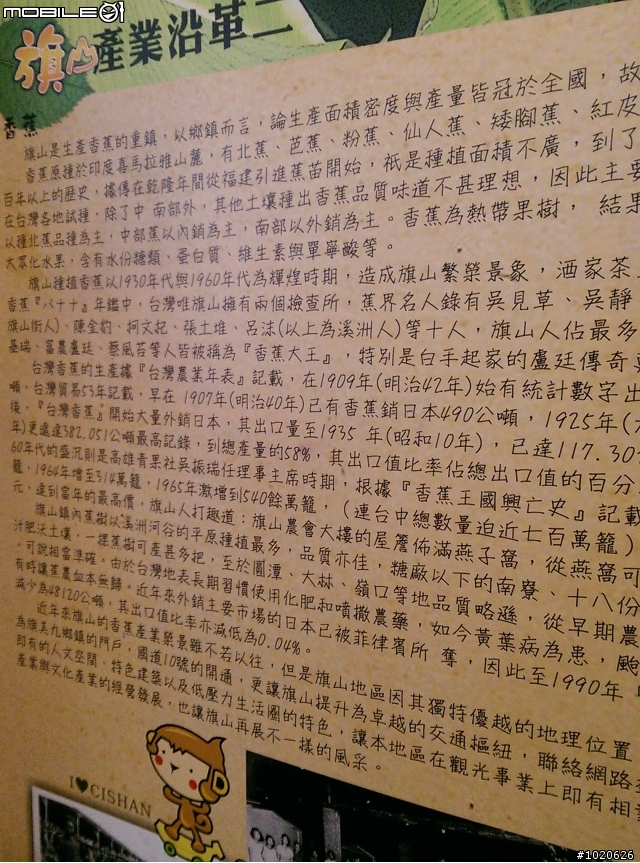 MOBILE01
旗山產業沿革二
香蕉
旗山是生產香蕉的重鎮，以鄉鎮而言，論生產面積密度與產量皆冠於全國，故
香蕉原種於印度喜馬拉雅山麓，有北蕉、芭蕉、粉蕉、仙人蕉、矮腳蕉、紅皮
百年以上的歷史，據傳在乾隆年間從福建引進蕉苗開始，祇是種植面積不廣，到了
在台灣各地試種，除了中 南部外，其他土壤種出香蕉品質味道不甚理想，因此主要
以種北蕉品種為主，中部蕉以內銷為主，南部以外銷為主。香蕉為熱帶果樹， 結果
大眾化水果，含有水份糖類、蛋白質、維生素與單寧酸等。
旗山種植香蕉以1930年代與1960年代為輝煌時期，造成旗山繁榮景象，酒家茶
香蕉『バナナ』年鑑中，台灣唯旗山擁有兩個檢查所，蕉界名人錄有吳見草、吳靜
旗山街人)、陳金豹、柯文、張土堆、呂沫(以上為溪洲人)等十人，旗山人佔最多
基瑞、富農盧廷、蔡風苔等人皆被稱為『香蕉大王』，特別是白手起家的盧廷傳奇
台灣香蕉的生產據『台灣農業年表』記載，在1909年(明治42年)始有統計數字出
噸，台灣貿易53年記載，早在 1907年(明治40年)已有香蕉銷日本490公噸，1925年(
後，『台灣香蕉』開始大量外銷日本，其出口量至1935 年(昭和10年)，已達117.30
年)更遠達382.051公噸最高記錄，到總產量的58%，其出口值比率佔總出口值的百分
60年代的盛況則是高雄青果社吳振瑞任理事主席時期，根據『香蕉王國興亡史』記載
籠，1964年增至314萬籠，1965年激增到540餘萬籠，（連台中總數量迫近七百萬籠）
元，達到當年的最高價，旗山人打趣道：旗山農會大樓的屋簷佈滿燕子窩，從燕窩可
旗山鎮內蕉樹以溪洲河谷的平原種植最多，品質亦佳，糖廠以下的南寮、十八份
汁肥沃土壤，一棵蕉樹可產甚多把，至於圓潭、大林、嶺口等地品質略遜，從早期農
，可說相當準確。由於台灣地表長期習慣使用化肥和噴撒農藥，如今黃葉病為患，颱
有時讓蕉農血本無歸。近年來外銷主要市場的日本已被菲律賓所 奪，因此至1990年
減少為48120公噸，其出口值比率亦減低為0.04%。
近年來旗山的香蕉產業榮景雖不若以往，但是旗山地區因其獨特優越的地理位置
為旗美九鄉鎮的門戶，國道10號的開通，更讓旗山提升為卓越的交通樞紐，聯絡網路
即有的人文空間、特色建築以及低壓力生活圈的特色，讓本地區在觀光事業上即有相
產業與文化產業的經營發展，也讓旗山再展不一樣的風采。
I♥CISHAN
#1020626